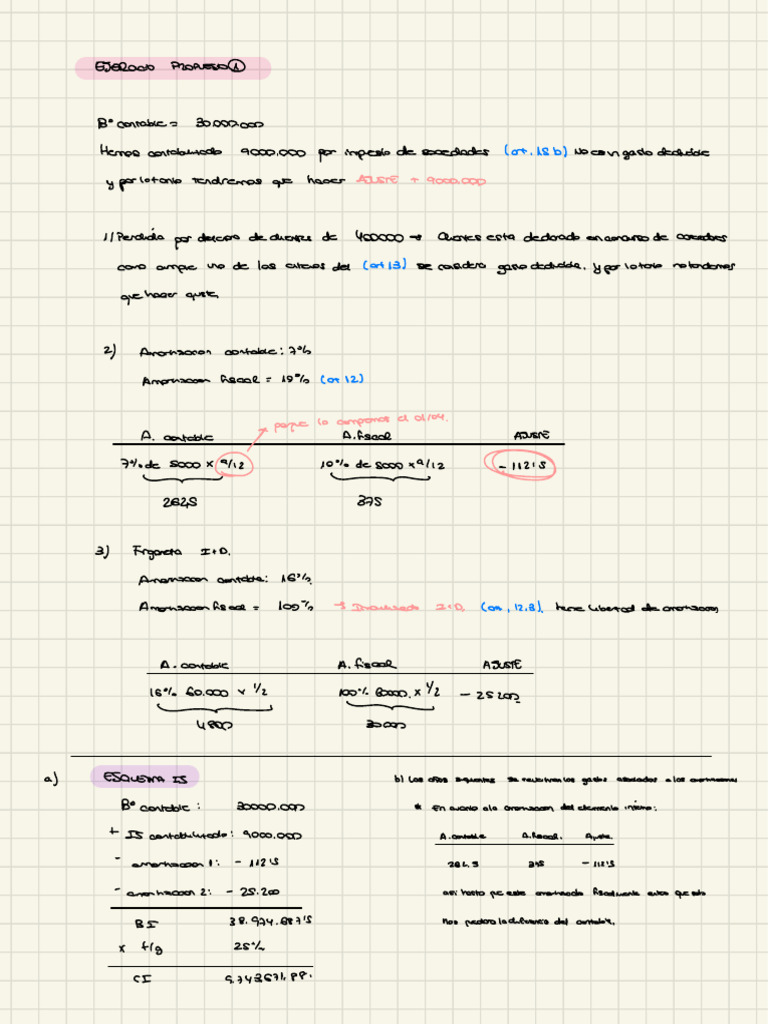 EJERCICIO PROPUESTO ①
Bº contable = 30.000.000
Hemos contabilizado 9000.000 por impuesto de sociedades (art. 15 b) No es un gasto deducible
y por lo tanto tendremos que hacer AJUSTE + 9000.000
1) Perdida por deterioro de clientes de 400000 → Clientes esta declarado en concurso de acreedores
como cumple uno de los criterios del (art 13) se considera gasto deducible, y por lo tanto no tendremos
que hacer ajuste.
2) Amortizacion contable: 7%
Amortizacion fiscal = 10% (art 12)
→ porque lo compramos el 01/04.
A. contable A. fiscal AJUSTE
7% de 5000 x 9/12 10% de 5000 x 9/12 - 112'5
262,5 375
3) Furgoneta I+D.
Amortizacion contable: 16%.
Amortizacion fiscal = 100% → Inmovilizado I+D. (art. 12.3). tiene libertad de amortizacion
A. contable A. fiscal AJUSTE
16% 60.000 x 1/2 100% 60000. x 1/2 - 25200
4800 30000
a) ESQUEMA IS
Bº contable: 30000.000
+ IS contabilizado: 9000.000
- amortizacion 1: - 112'5
- amortizacion 2: - 25.200
BI 38.974.687'5
x t/g 25%
CI 9.743671,88.
b) Los años siguientes se revertiran los gastos asociados a las amortizaciones
* En cuanto a la amortizacion del elemento
A. contable A. fiscal. Ajuste
262,5 375 - 112'5
asi hasta que este amortizado fiscalmente
diferencia del contable.